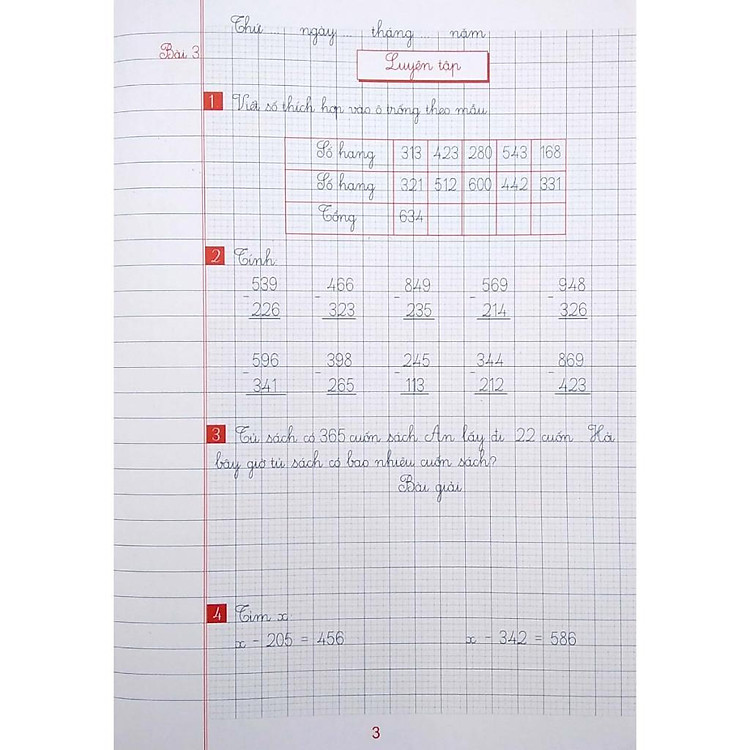 Thứ ... ngày ... tháng ... năm
Bài 3
Luyện tập
1 Viết số thích hợp vào ô trống theo mẫu
Số hạng 313 423 280 543 168
Số hạng 321 512 600 442 331
Tổng 634
2 Tính
539 466 849 569 948
- - - - -
226 323 235 214 326
596 398 245 344 869
- - - - -
341 265 113 212 423
3 Tủ sách có 365 cuốn sách An lấy đi 22 cuốn Hỏi
bây giờ tủ sách có bao nhiêu cuốn sách?
Bài giải
4 Tìm x
x - 205 = 456 x - 342 = 586
3